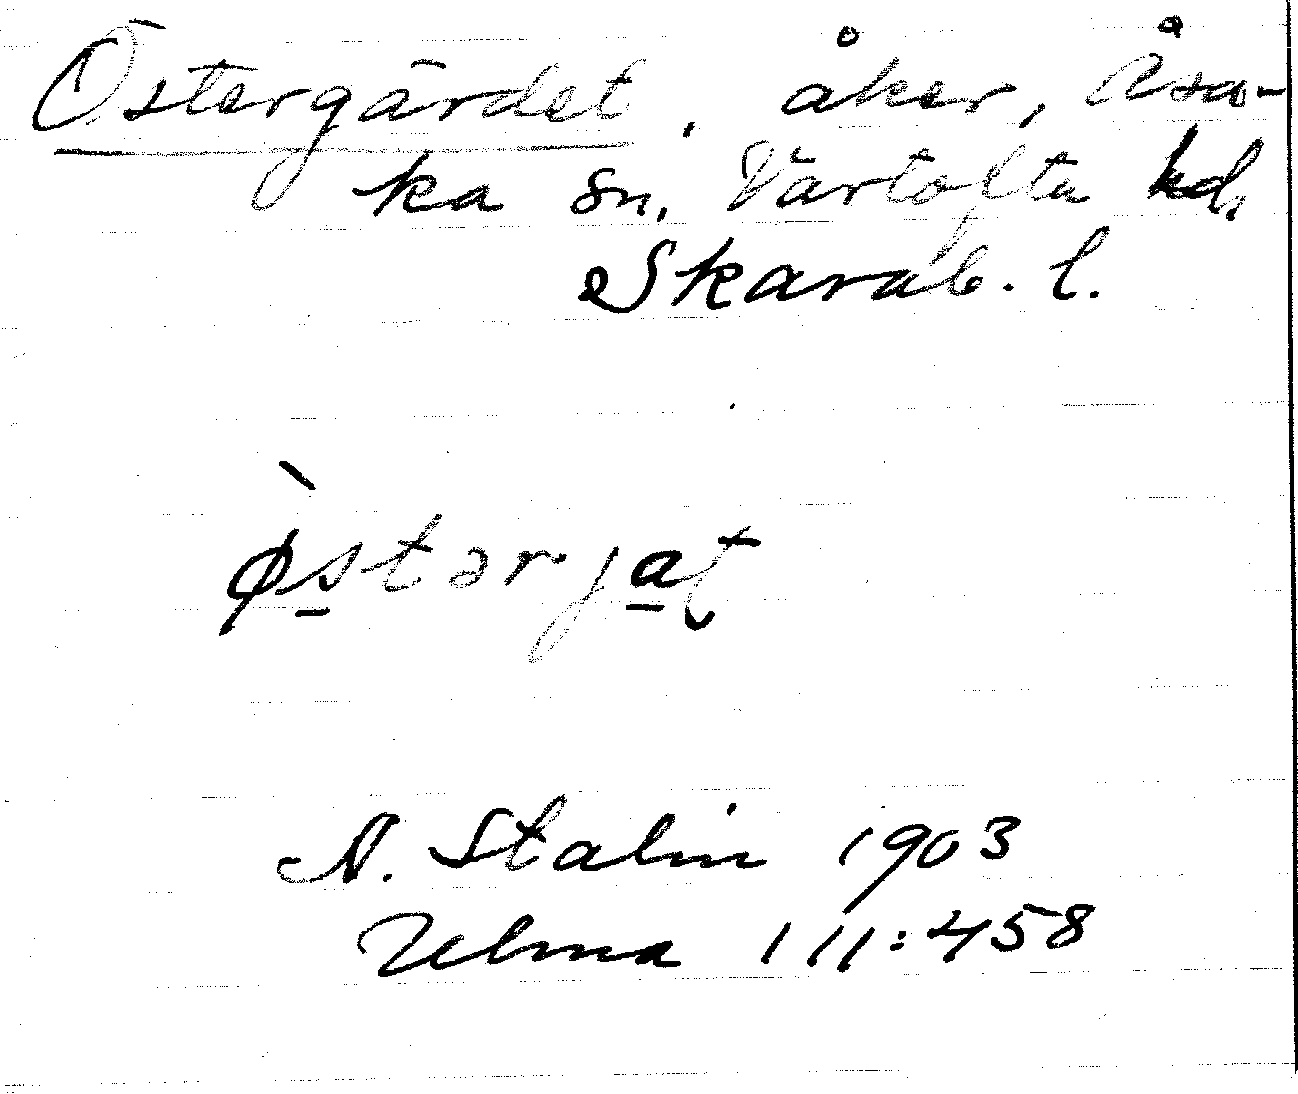 Östergärdet, åker, Åsa-
ka sn, Vartofta hd,
Skarab. l.
ø̀stərjat
A. Stalin 1903
Ulma 111:458